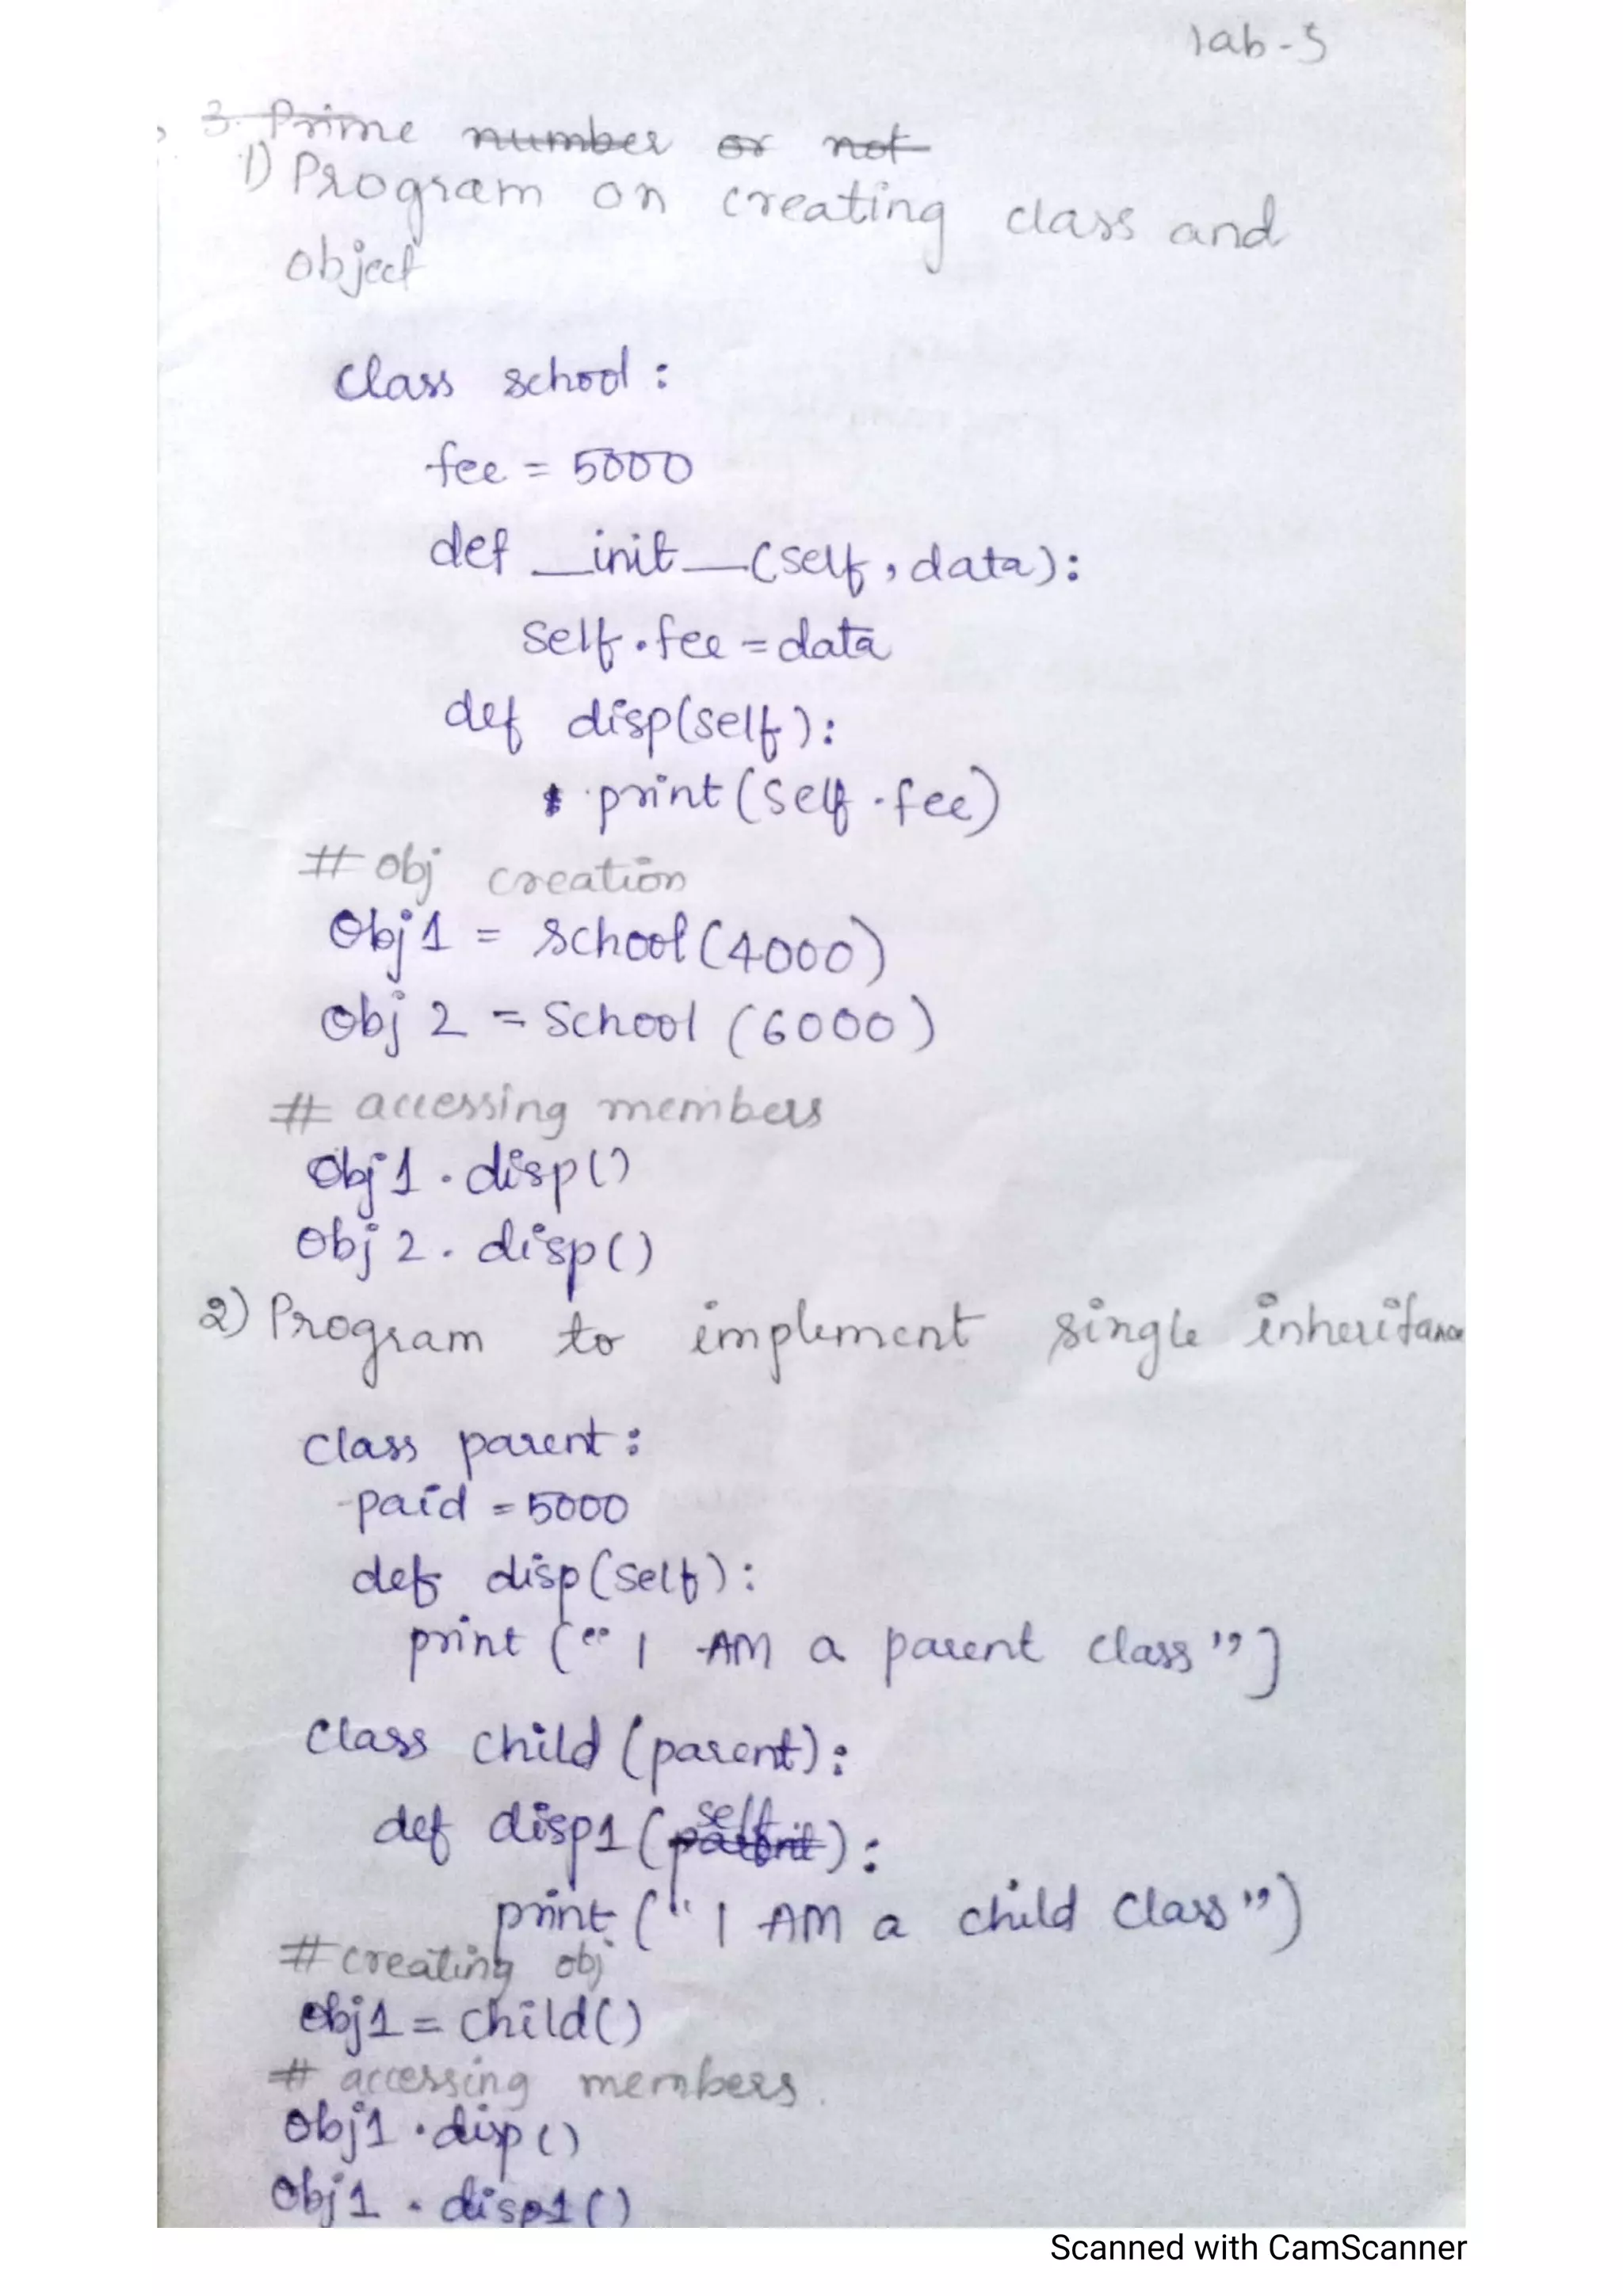 lab-5
3. Prime number or not
1) Program on creating class and
object
class school :
fee = 5000
def __init__(self, data):
self.fee = data
def disp(self):
print(self.fee)
# obj creation
Obj1 = School(4000)
obj 2 = School (6000)
# accessing members
Obj1.disp()
obj 2.disp()
2) Program to implement single inheritance
class parent :
paid = 5000
def disp(self):
print (" I AM a parent class ")
class child (parent):
def disp1 (self):
print (" I AM a child class ")
# creating obj
obj1 = child()
# accessing members.
obj1.disp()
obj1.disp1()
Scanned with CamScanner